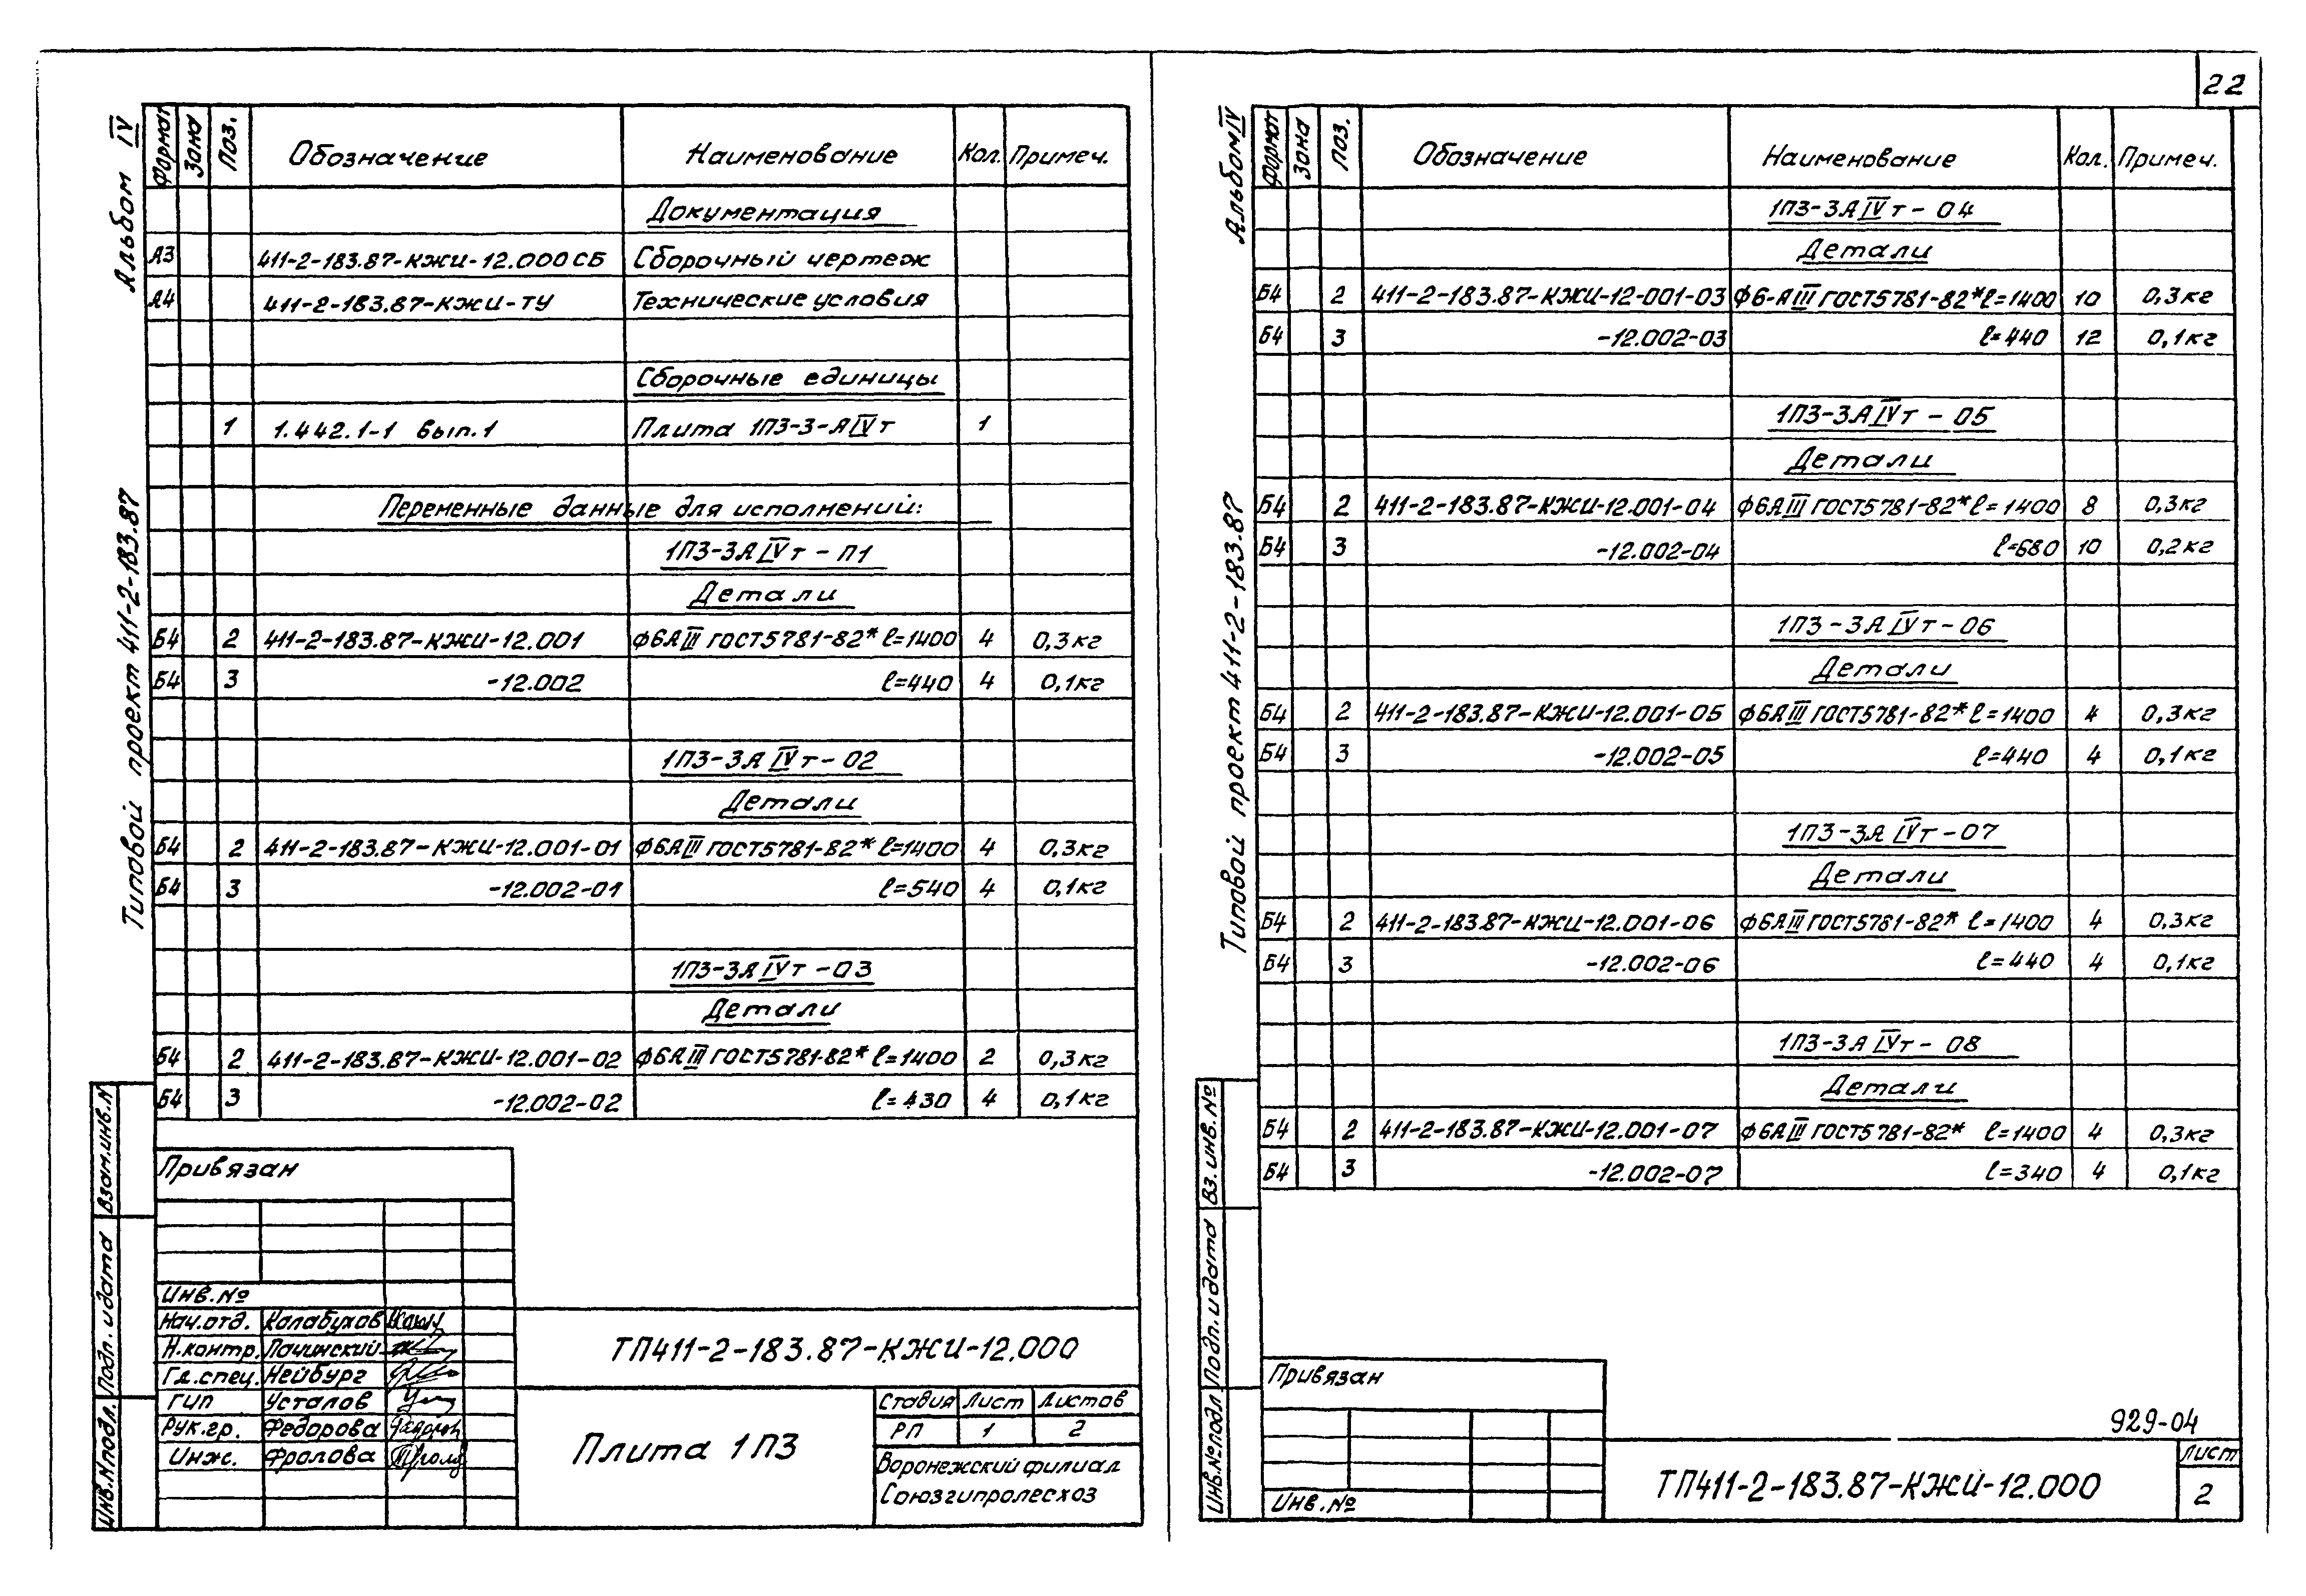 22
Альбом IV
Типовой проект 411-2-183.87
Формат Зона Поз. Обозначение Наименование Кол. Примеч.
Документация
А3 411-2-183.87-КЖИ-12.000СБ Сборочный чертеж
А4 411-2-183.87-КЖИ-ТУ Технические условия
Сборочные единицы
1 1.442.1-1 вып.1 Плита 1П3-3-АIVт 1
Переменные данные для исполнений:
1П3-3АIVт-П1
Детали
Б4 2 411-2-183.87-КЖИ-12.001 ф6АIII ГОСТ5781-82* ℓ=1400 4 0,3кг
Б4 3 -12.002 ℓ=440 4 0,1кг
1П3-3АIVт-02
Детали
Б4 2 411-2-183.87-КЖИ-12.001-01 ф6АIII ГОСТ5781-82* ℓ=1400 4 0,3кг
Б4 3 -12.002-01 ℓ=540 4 0,1кг
1П3-3АIVт-03
Детали
Б4 2 411-2-183.87-КЖИ-12.001-02 ф6АIII ГОСТ5781-82* ℓ=1400 2 0,3кг
Б4 3 -12.002-02 ℓ=430 4 0,1кг
Взам.инв.N
Подп. и дата
Инв.N подл.
Привязан
Инв.№
Нач.отд. Калабухов
Н.контр. Лачинский
Гл.спец. Нейбург
ГИП Усталов
Рук.гр. Федорова
Инж. Фролова
ТП411-2-183.87-КЖИ-12.000
Плита 1П3
Стадия Лист Листов
РП 1 2
Воронежский филиал
Союзгипролесхоз
Альбом IV
Типовой проект 411-2-183.87
Формат Зона Поз. Обозначение Наименование Кол. Примеч.
1П3-3АIVт-04
Детали
Б4 2 411-2-183.87-КЖИ-12-001-03 ф6-АIII ГОСТ5781-82* ℓ=1400 10 0,3кг
Б4 3 -12.002-03 ℓ=440 12 0,1кг
1П3-3АIVт-05
Детали
Б4 2 411-2-183.87-КЖИ-12.001-04 ф6АIII ГОСТ5781-82* ℓ=1400 8 0,3кг
Б4 3 -12.002-04 ℓ=680 10 0,2кг
1П3-3АIVт-06
Детали
Б4 2 411-2-183.87-КЖИ-12.001-05 ф6АIII ГОСТ5781-82* ℓ=1400 4 0,3кг
Б4 3 -12.002-05 ℓ=440 4 0,1кг
1П3-3АIVт-07
Детали
Б4 2 411-2-183.87-КЖИ-12.001-06 ф6АIII ГОСТ5781-82* ℓ=1400 4 0,3кг
Б4 3 -12.002-06 ℓ=440 4 0,1кг
1П3-3АIVт-08
Детали
Б4 2 411-2-183.87-КЖИ-12.001-07 ф6АIII ГОСТ5781-82* ℓ=1400 4 0,3кг
Б4 3 -12.002-07 ℓ=340 4 0,1кг
Вз. инв.№
Подп. и дата
Инв.№подл
Привязан
Инв.№
929-04
ТП411-2-183.87-КЖИ-12.000
Лист
2